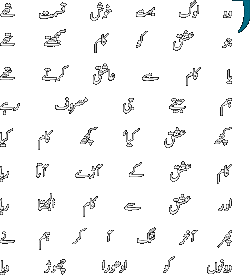 وہ لوگ بہت خوش قسمت تھے
جو عشق کو کام سمجھتے تھے
یا کام سے عاشقی کرتے تھے
ہم جیتے جی مصروف رہے
کچھ عشق کیا کچھ کام کیا
کام عشق کے آڑے آتا رہا
اور عشق سے کام الجھتا رہا
پھر آخر تنگ آ کر ہم نے
دونوں کو ادھورا چھوڑ دیا